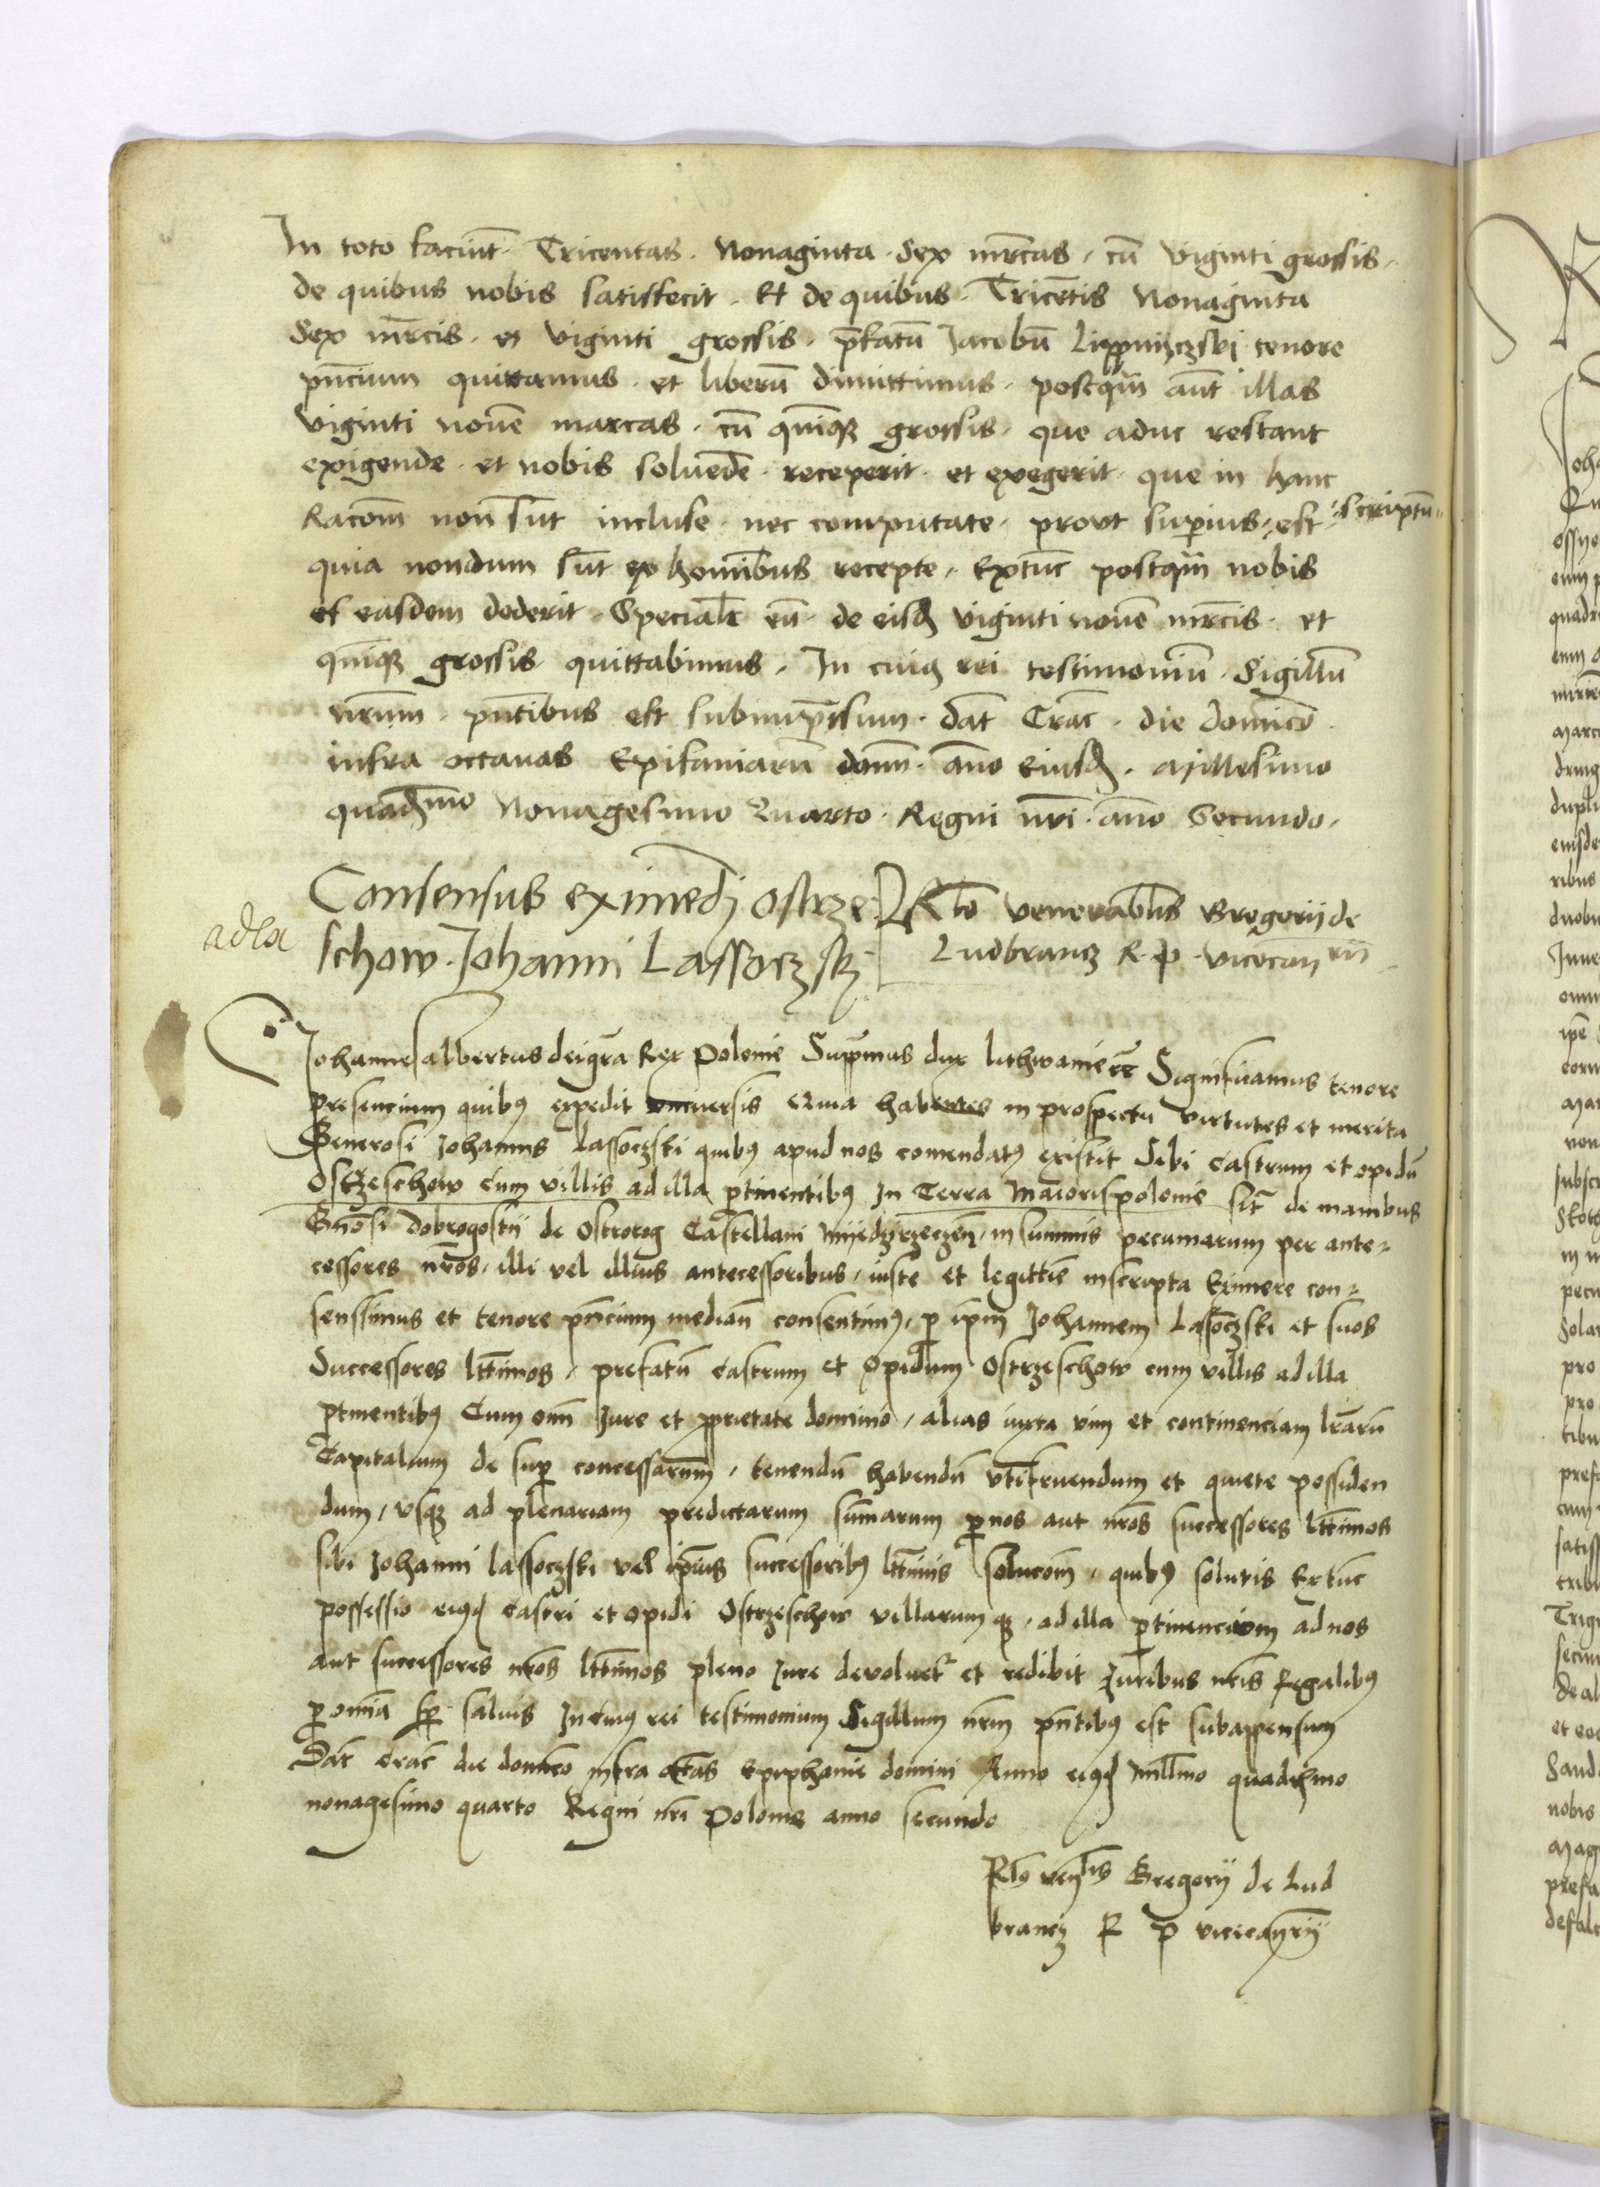 In toto faciūt · Tricentas · Nonaginta · Sex mr̄cas · cū viginti grossis ·
de quibus nobis satisfecit · Et de quibus · Tricētis Nonaginta
Sex mr̄cis · et viginti grossis · p̄fatū Jacobū Lippniczski tenore
pn̄cium quittamus · et liberū dimittimus · postqm̄ aūt illas
viginti nouē marcas · cū qn̄iqȝ grossis · que aduc restant
exigende · et nobis soluēde · receperit · et exegerit · que in hanc
Racōm non sūt incluse · nec computate · prout suꝑius · est · scriptū
quia nondum sūt ex hoīnibus recepte · Extūc postqm̄ nobis
et easdem dederit · Specialr̄ eū · de eisdē viginti nouē mr̄cis · et
qn̄iqȝ grossis quittabimus · In cuiꝯ rei testimoniū · Sigillū
nr̄um · pn̄tibus est subimp̄ssum · dat̄ Crac̄ · die domīco
infra octauas Epifaniarū domī · ān̄o eiusdē · Millesimo
quadꝛ̄mo Nonagesimo Quarto · Regni nr̄i · ān̄o Secundo ·
Consensus eximēdi ostrze
schow · Johanni Lassoczski
Rlō venerabīlis Gregorij de
Ludbrancz R · p · vicecan̄rij
ad la
Johannes albertus dei gr̄a Rex Polonie Supp̄mus dux lithwanie ec̄ Significamus tenore
presencium quibꝯ expedit vniuersis Quia habentes in prospectu virtutes et merita
Generosi Johannis Lassoczski quibꝯ apud nos comendatꝯ existit Sibi Castrum et opidū
Ostrzeschow Cum villis ad illa ꝑtinentibꝯ In Terra Maiorispolonie sit̄ de manibus
Gn̄osi dobrogostii de Ostrorog Castellani Myedzirzeczeñ · in summis pecuniarum per ante-
cessores nr̄os · illi vel illius antecessoribus · iuste et legittīe inscripta Eximere con-
senssimus et tenore pn̄cium mediañ consentimꝯ · ꝑ ip̄m Johannem Lassoczski et suos
Successores lt̄timos · prefatū Castrum et Opidum Ostrzeschow cum villis ad illa
ꝑtinentibꝯ Cum om̄i Jure et ꝓprietate dominio · alias iuxta vim et continenciam lr̄arū
Capitalium de suꝑ concessarum · tenendū habendū vtifruendum et quiete possiden
dum · vsqȝ ad plenariam predictarum sum̄arum ꝑ nos aut nr̄os successores lt̄timos
sibi Johanni lassoczski vel ip̄ius successoribꝯ lt̄timis solucōm · quibꝯ solutis Extūc
possessio eiꝯdē castri et opidi Ostrzeschow villarumqȝ · ad illa ꝑtinencium ad nos
aut successores nr̄os lt̄timos pleno Jure deuoluet̄ et redibit Juribus nr̄is Regalibꝯ
ꝑ om̄ia sꝑ saluis In cuiꝯ rei testimonium Sigillum nr̄m pn̄tibꝯ est subappensum
Dat̄ Crac̄ die domīco infra oct̄as Epiphanie domini Anno eiꝯdē Mill̄imo quadꝛ̄mo
nonagesimo quarto Regni nr̄i Polonie anno secundo
Rlō ven̄lis Gregorij de Lud
brancz R p vicecan̄rij